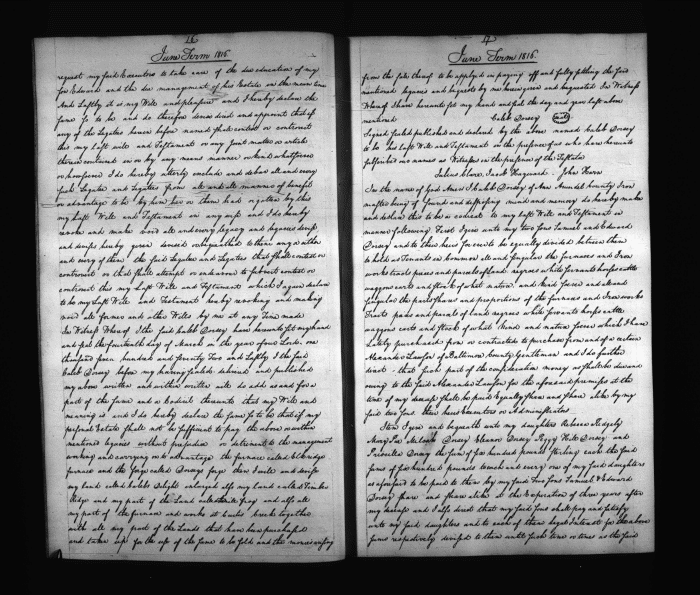 16
June Term 1815
request my said Executors to take care of the due education of my
son Edward and the due management of his Estate in the mean time
And Lastly it is my Will and pleasure and I hereby declare the
same so to be and do therefore devise direct and appoint that if
any of the legatees herein before named shall contest or controvert
this my Last will and Testament or any part matter or article
therein contained or by any means manner or kind whatsoever
or howsoever I do hereby utterly exclude and debar all and every
such Legatee and Legatees from all and all manner of benefit
or advantage to be by him her or them had or gotten by this
my Last Will and Testament in any wise and I do hereby
revoke and make void all and every legacy and legacies devise
and devises hereby given devised or bequeathed to them any or either
and every of them the said Legatee and Legatees that shall contest or
controvert or that shall attempt or endeavor to contest or
controvert this my Last Will and Testament which I again declare
to be my Last Will and Testament hereby revoking and making
void all former and other Wills by me at any Time made
In Witness Whereof I the said Caleb Dorsey have hereunto set my hand
and seal the fourteenth day of March in the year of our Lord one
thousand seven hundred and seventy Two and Lastly I the said
Caleb Dorsey before my having sealed delivered and published
my above written and within written will do add as and for a
part of the same and as Codicil thereunto that my Will and
meaning is and I do hereby declare the same so to be that if my
personal Estate shall not be sufficient to pay the above or within
mentioned legacies without prejudice or detriment to the management
working and carrying on to advantage the furnace called Elkridge
furnace and the forge called Dorseys forge then I will and devise
my land called Calebs Delight enlarged also my Land called Timber
Ridge and my part of the Land called and also all
my part of the furnace and works at Curtis's creek together
with all my part of the Lands that have been purchased
and taken up for the use of the same to be sold and the monies arising
17
June Term 1815
from the sale thereof to be applyed in paying off and fully filling the said
mentioned legacies and bequests by me herein given and bequeathed In Witness
Whereof I have hereunto set my hand and seal the day and year last above
mentioned Caleb Dorsey (seal)
Signed sealed published and declared by the above named Caleb Dorsey
to be his Last Will and Testament in the presence of us who have hereunto
subscribed our names as Witnesses in the presence of the Testator
Jacob Hayward John Hood
In the name of god Amen I Caleb Dorsey of Ann Arundel County Iron
master being of sound and disposing mind and memory do hereby make
and declare this to be a codicil to my Last Will and Testament in
manner following First I give unto my two sons Samuel and Edward
Dorsey and to their heirs forever to be equally divided between them
to hold as Tenants in common all and singular the furnaces and Iron
works tracts pieces and parcels of land negroes white servants horses cattle
waggons carts and Stock of what nature and kind soever and all and
singular the parts shares and proportions of the furnaces and Iron works
Tracts pieces and parcels of land negroes white servants horses cattle
waggons carts and Stock of what kind and nature soever which I have
Lately purchased from or contracted to purchase from and of a certain
Alexander Lawson of Baltimore County Gentleman and I do further
direct that such part of the consideration money as shall be due and
owing to the said Alexander Lawson for the aforesaid premises at the
time of my decease shall be paid Equally Share and Share alike by my
said two sons their heirs Executors or Administrators
Item I give and bequeath unto my daughters Rebecca Ridgely
Mary Pue Milcah Dorsey Eleanor Dorsey Peggy Hill Dorsey and
Priscilla Dorsey the sum of five hundred pounds Sterling each the said
sums of five hundred pounds to each and every one of my said daughters
as aforesaid to be paid to them by my said two sons Samuel & Edward
Dorsey share and share alike at the Expiration of three years after
my decease and I also direct that my said sons shall pay and satisfy
unto my said daughters and to each of them legal Interest for the above
sums respectively devised to them until such time or times as the said